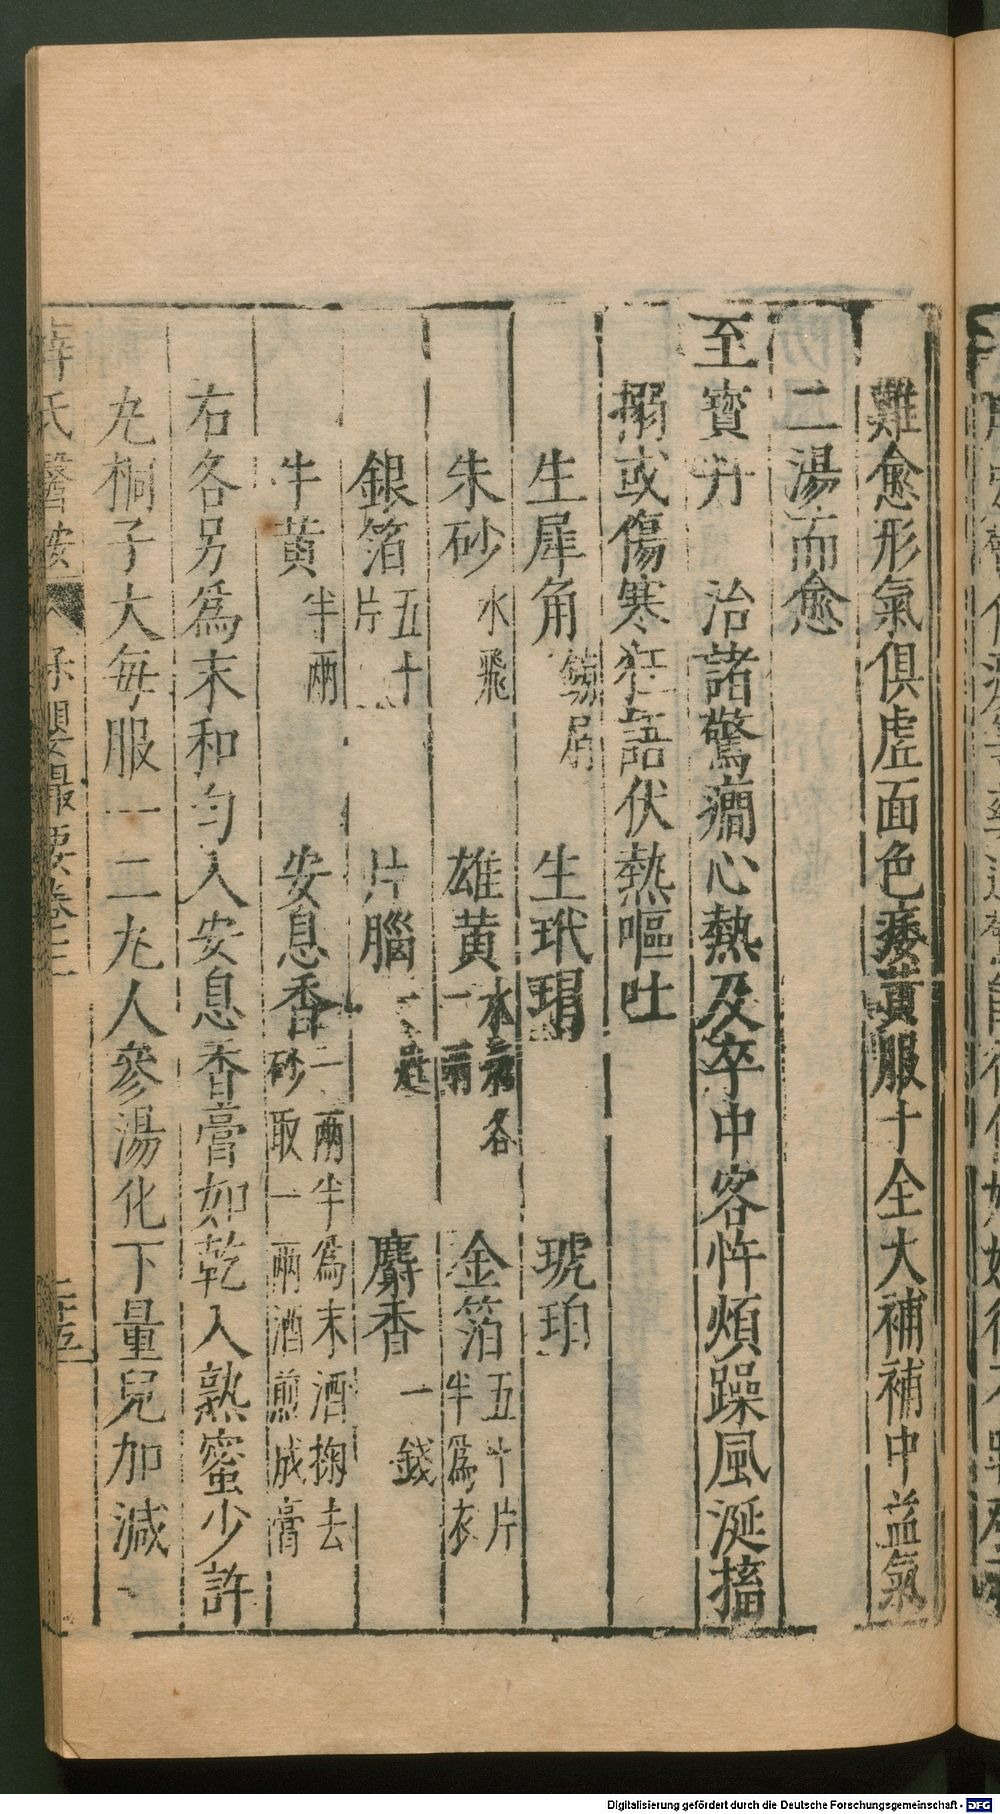 難愈形氣俱虛面色痿黃服十全大補補中益氣
二湯而愈
至寶丹　治諸驚癎心熱及卒中客忤煩躁風涎搐
搦或傷寒狂語伏熱嘔吐
生犀角鎊屑　生玳瑁　琥珀
朱砂水飛　雄黃水飛各一兩　金箔五十片半爲衣
銀箔五十片　片腦一錢　麝香一錢
牛黃半兩　安息香二兩半爲末酒掏去砂取一兩酒煎成膏
右各另爲末和勻入安息香膏如乾入熟蜜少許
丸桐子大每服一二丸人參湯化下量兒加減
薛氏醫按　保嬰撮要卷三　二十五
Digitalisierung gefördert durch die Deutsche Forschungsgemeinschaft - DFG